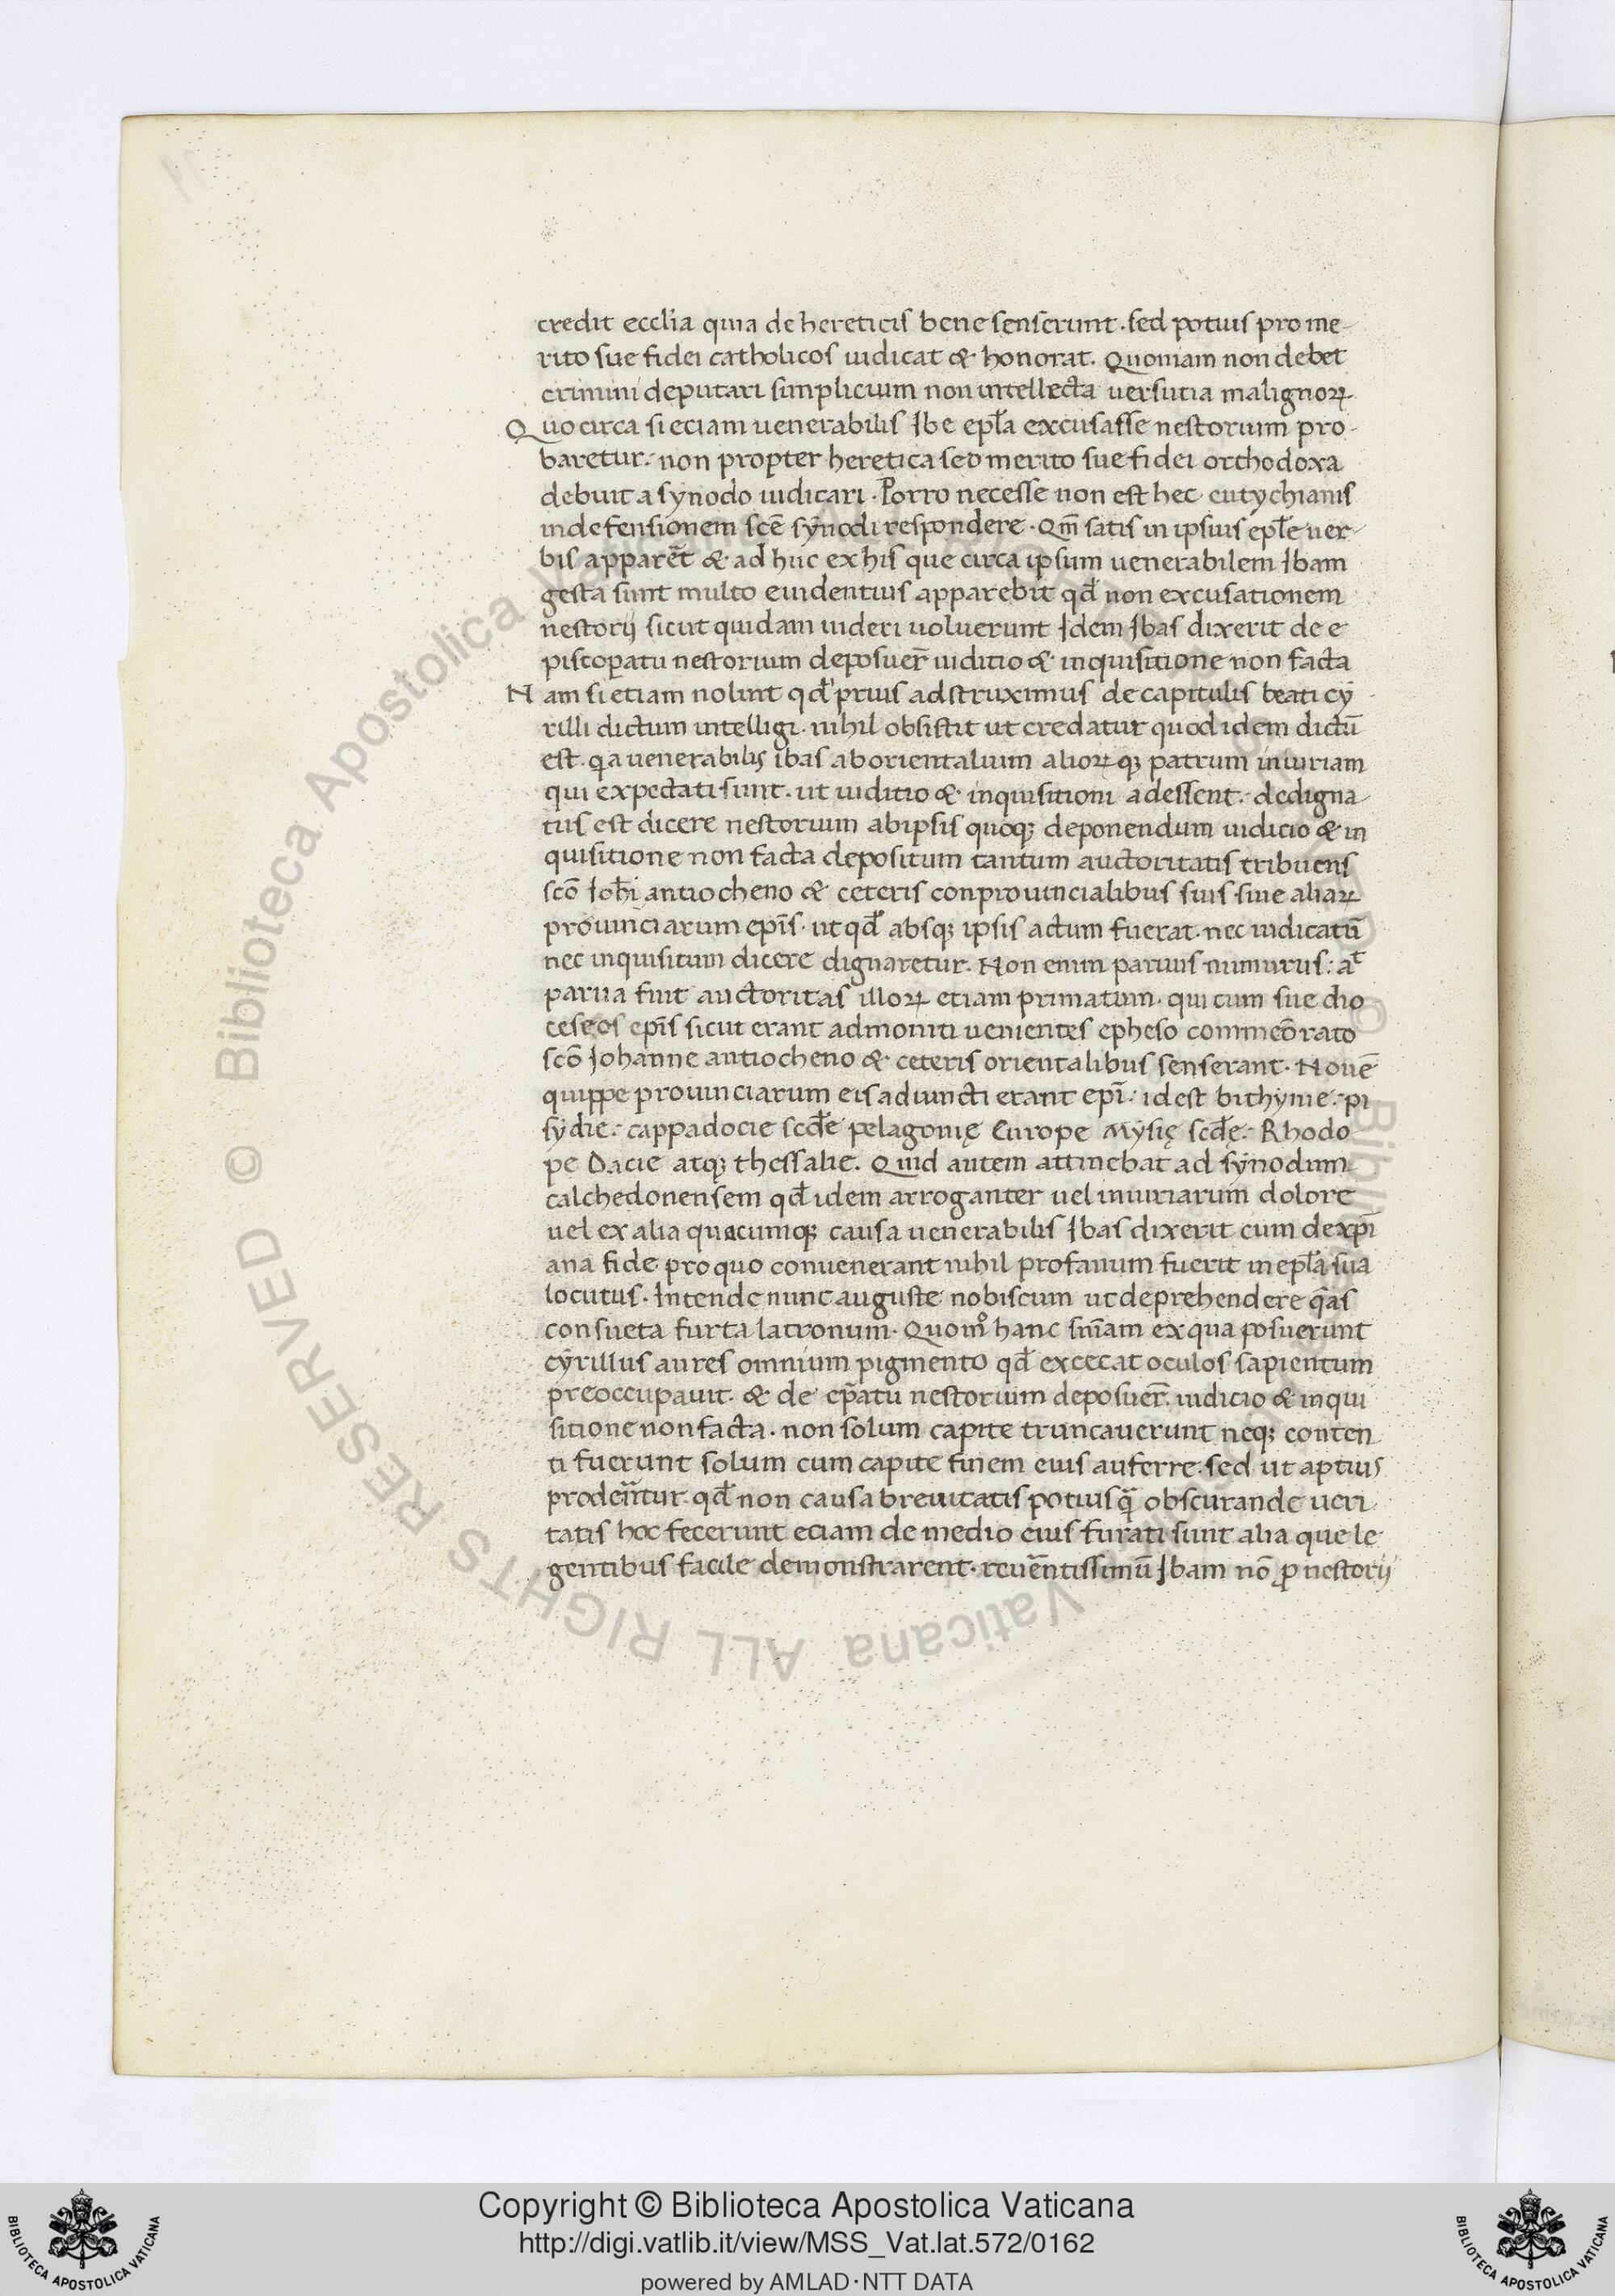 credit ecclīa quia de hereticis bene senserunt. sed potius pro me-
rito sue fidei catholicos iudicat & honorat. Quoniam non debet
crimini deputari simplicium non intellecta uersutia malignoꝝ
Quocirca si eciam uenerabilis Ibe epła excusasse nestorium pro-
baretur. non propter heretica sed merito sue fidei orthodoxa
debuit a synodo iudicari. Porro necesse non est hec eutychianis
in defensionem scē synodi respondere. Qm̄ satis in ipsius epłe uer-
bis apparēt & ad huc ex his que circa ipsum uenerabilem Ibam
gesta sunt multo euidentius apparebit qđ non excusationem
nestorij sicut quidam uideri uoluerunt Idem Ibas dixerit de e
piscopatu nestorium deposuer̄ iuditio & inquisitione non facta
Nam si etiam nolint qđ prius adstruximus de capitulis beati cy-
rilli dictum intelligi. nihil obsistit ut credatur quod idem dictū
est. qa uenerabilis ibas ab orientalium alioꝝ qꝫ patrum iniuriam
qui expectati sunt. ut iuditio & inquisitioni adessent. dedigna
tus est dicere nestorium ab ipsis quoqꝫ deponendum iudicio & in
quisitione non facta depositum tantum auctoritatis tribuens
scō Ioħi antiocheno & ceteris conprouincialibus suis siue aliaꝝ
prouinciarum epīs. ut qđ absqꝫ ipsis actum fuerat. nec iudicatū
nec inquisitum dicere dignaretur. Non enim paruus numurus: aᵗ
parua fuit auctoritas illoꝝ etiam primatum. qui cum sue dio
ceseos epīs sicut erant admoniti uenientes epheso commeōrato
scō Johanne antiocheno & ceteris orientalibus senserant. Nouē
quippe prouinciarum eis adiuncti erant epī: id est bithynie. pi
sydie. cappadocie scđe pelagonię Europe Mysię scđę. Rhodo
pe Dacie atqꝫ thessalie. Quid autem attinebat ad synodum
calchedonensem qđ idem arroganter uel iniuriarum dolore
uel ex alia quacumqꝫ causa uenerabilis Ibas dixerit cum de xpī
ana fide pro quo conuenerant nihil profanum fuerit in epła sua
locutus. Intende nunc auguste nobiscum ut deprehendere q̄as
consueta furta latronum. Quomº hanc sm̄am ex qua posuerunt
cyrillus aures omnium pigmento qđ excecat oculos sapientum
preoccupauit. & de ep̄atu nestorium deposuer̄. iudicio & inqui
sitione non facta. non solum capite truncauerunt neqꝫ conten
ti fuerunt solum cum capite finem eius auferre. sed ut aptius
prodeāntur. qđ non causa breuitatis potius q̄ obscurande ueri
tatis hoc fecerunt eciam de medio eius furati sunt alia que le
gentibus facile demonstrarent. reuēntissimū Ibam nō ꝓ nestorij
© Biblioteca Apostolica Vaticana ALL RIGHTS RESERVED
Copyright © Biblioteca Apostolica Vaticana
http://digi.vatlib.it/view/MSS_Vat.lat.572/0162
powered by AMLAD·NTT DATA
BIBLIOTECA APOSTOLICA VATICANA
BIBLIOTECA APOSTOLICA VATICANA